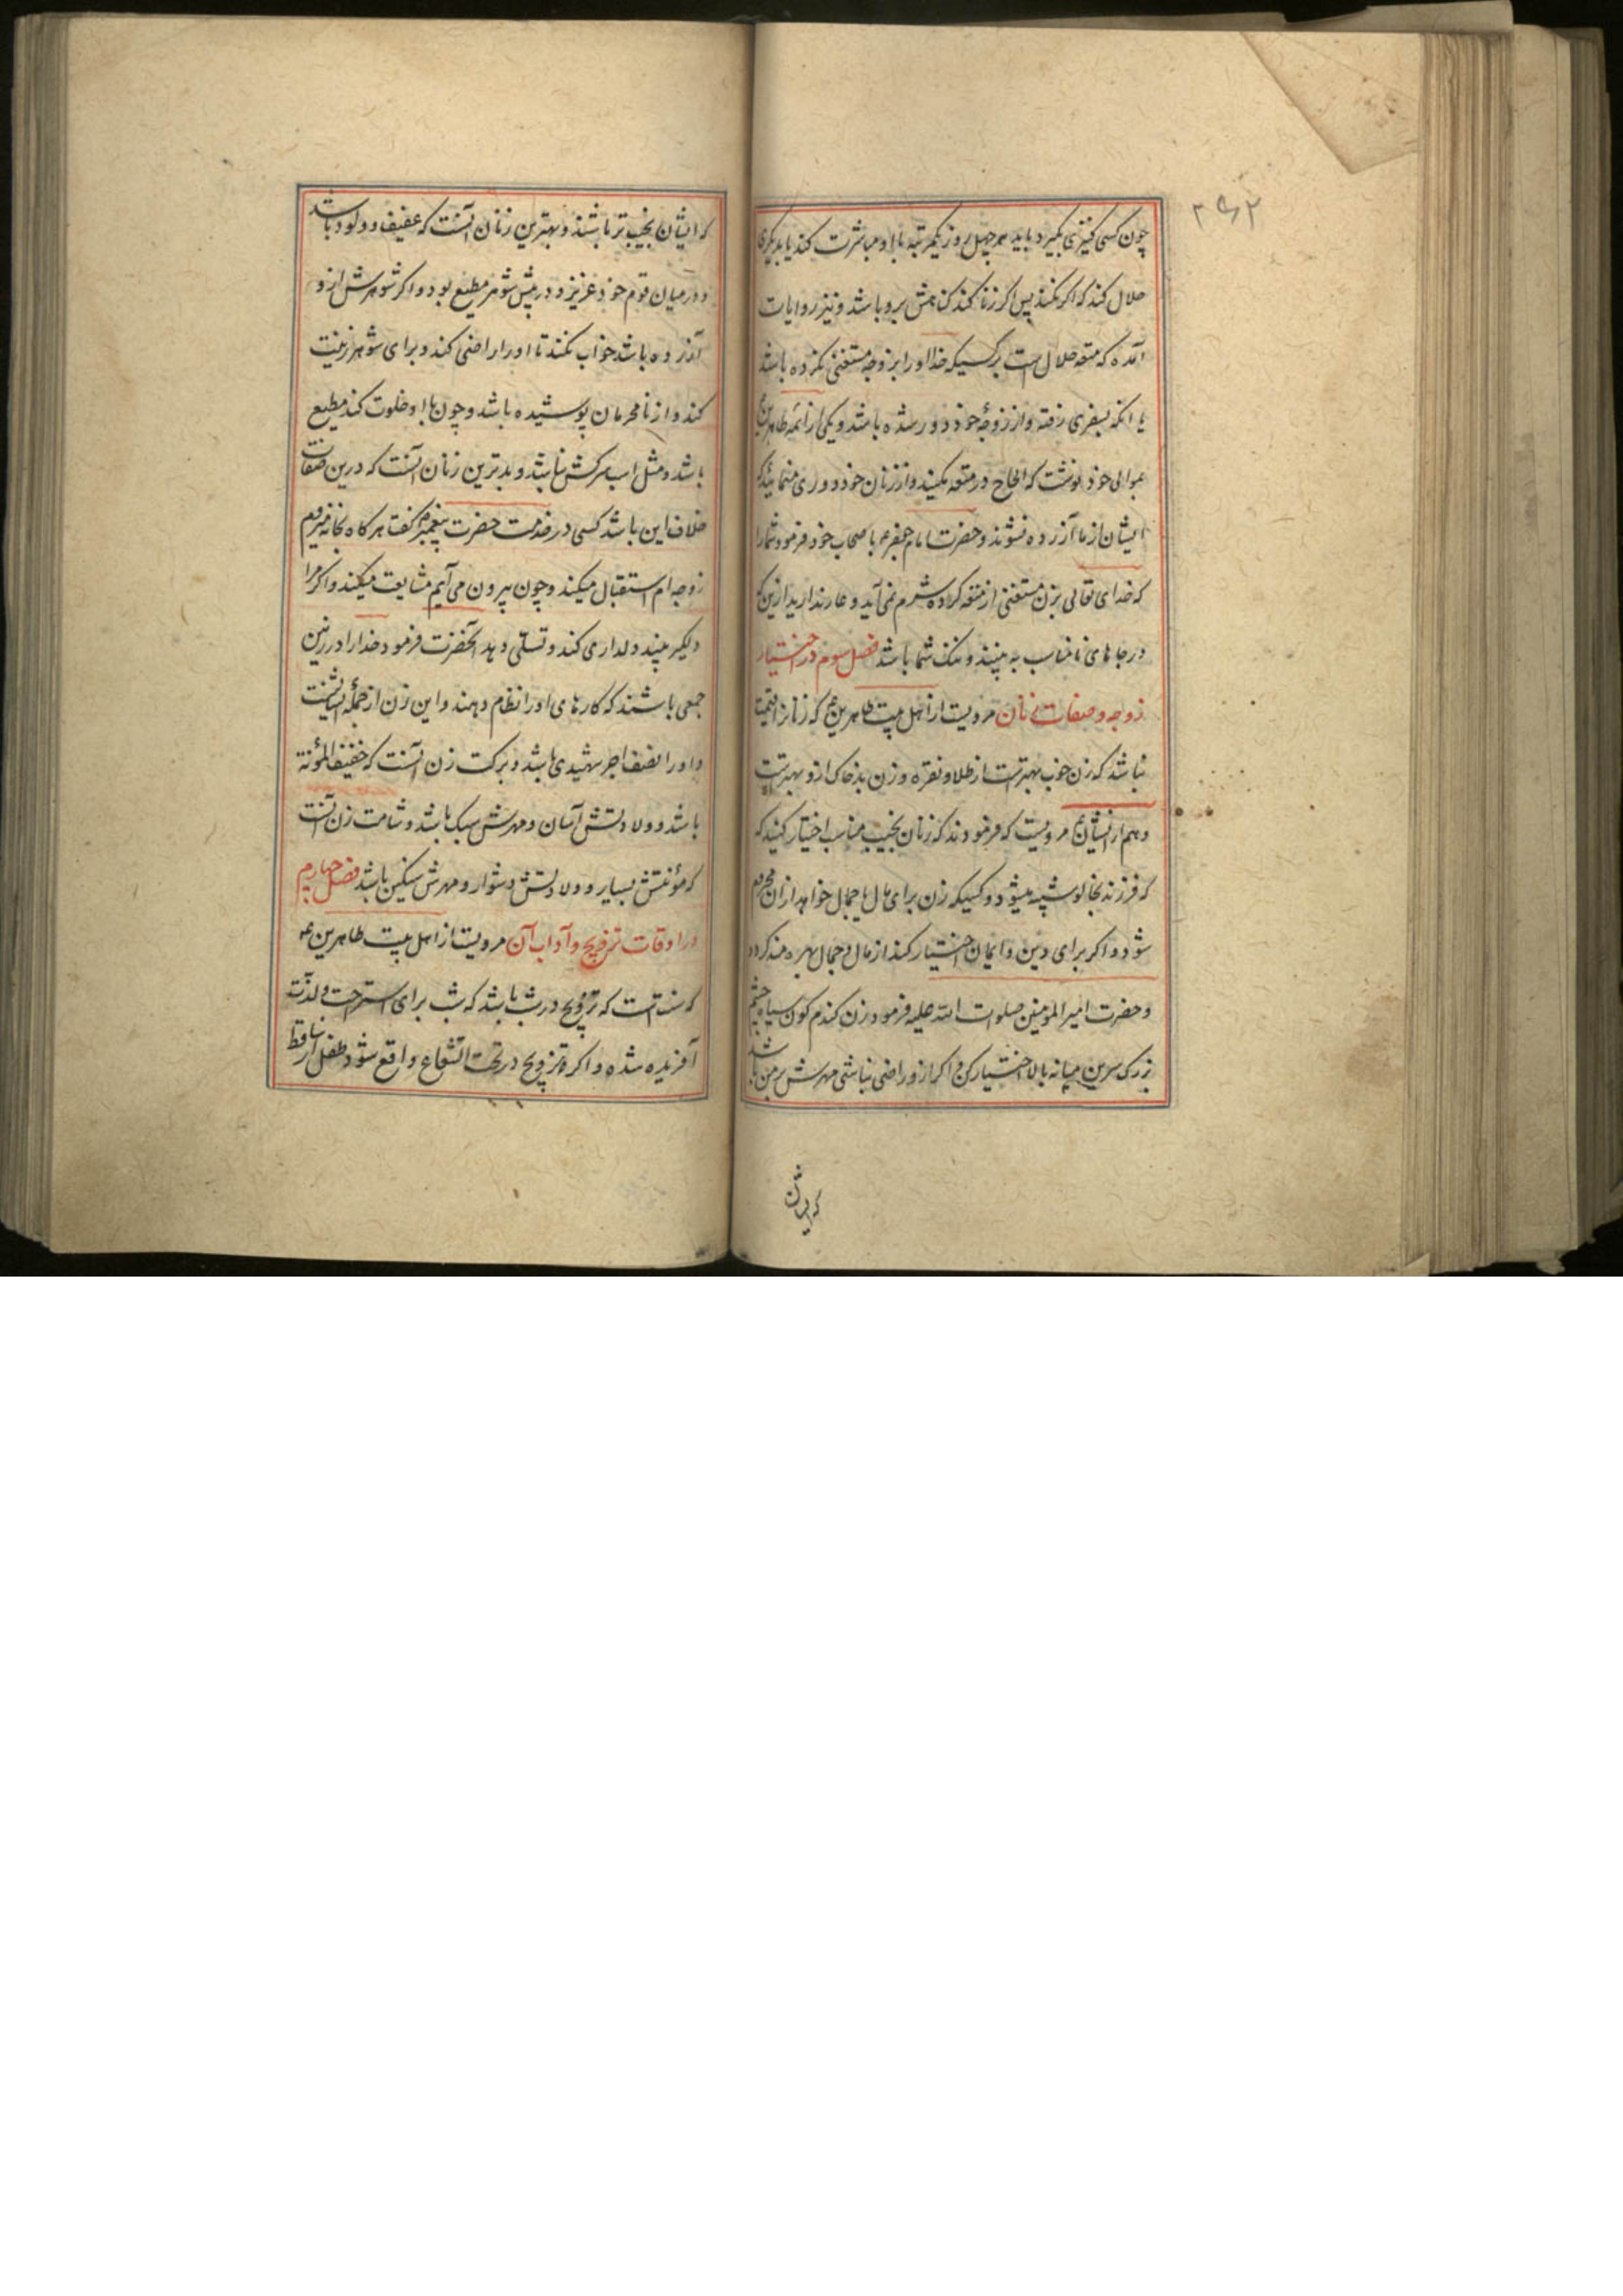 ۲۹۲
چون کسی کنیزی بگیرد باید هر چهل روز یکمرتبه با او مباشرت کند یا بدیکری
حلال کند که اکر نکند پس اکر زنا کند کناهش برو باشد و نیز روایات
آمده که متعه حلال است بر کسیکه خدا او را بزوجه مستغنی نکرده باشد
یا آنکه بسفری رفته و از زوجهٔ خود دور شده باشد و یکی از ائمه طاهرین ع
بموالی خود نوشت که الحاح در متعه مکنید و از زنان خود دوری منمائید که
ایشان از ما آزرده نشوند و حضرت امام جعفر ع باصحاب خود فرمود شما را
که خدای تعالی بزن مستغنی از متعه کرده شرم نمی آید و عار ندارید ازین که
در جاهای نامناسب به بینند و ننک شما باشد فصل سوم در اختیار
زوجه و صفات زنان مرویست از اهل بیت طاهرین ع که زنانرا قیمت
نباشد که زن خوب بهتر است از طلا و نقره و زن بد خاک ازو بهتر است
و هم از ایشان ع مرویست که فرمودند که زنان نجیب مناسب اختیار کنید که
که فرزند بخالو شبیه میشود و کسیکه زن برای مال یا جمال خواهد از آن محروم
شود و اکر برای دین و ایمان اختیار کند از مال و جمال بهره مند کردد
و حضرت امیر المومنین صلوات الله علیه فرمود زن کندم کون سیاه چشم
بزرک سرین میانه بالا اختیار کن و اکر ازو راضی نباشی مهرش بر من باشد
که ایشان
که ایشان نجیب تر باشند و بهترین زنان آنست که عفیف و ولود باشد
و در میان قوم خود عزیز و در پیش شوهر مطیع بود و اکر شوهرش ازو
آزرده باشد خواب نکند تا او را راضی کند و برای شوهر زینت
کند و از نامحرمان پوسشیده باشد و چون با او خلوت کند مطیع
باشد و مثل اسب سرکش نباشد و بدترین زنان آنست که درین صفات
خلاف این باشد کسی در خدمت حضرت پیغمبر ص کفت هر کاه بخانه میروم
زوجه ام استقبال میکند و چون بیرون می آیم مشایعت میکند و اکر مرا
دلکیر بیند دلداری کند و تسلی دهد آنحضرت فرمود خدا را در زمین
جمعی باشند که کارهای او را نظام دهند و این زن از جملهٔ ایشانست
و او را نصف اجر شهیدی باشد و برکت زن آنست که خفیف المؤنة
باشد و ولادتش آسان و مهرش سبک باشد و شامت زن آنست
که مؤنتش بسیار و ولادتش دشوار و مهرش سنکین باشد فصل چهارم
در اوقات تزویج و آداب آن مرویست از اهل بیت طاهرین ع
که سنت است که تزویج در شب باشد که شب برای استراحت و لذت
آفریده شده و اکر تزویج در تحت الشعاع واقع شود طفل ساقط